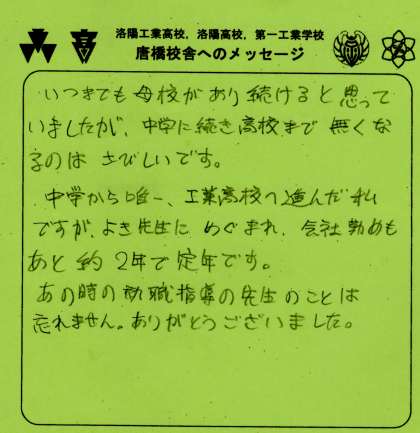 洛陽工業高校, 洛陽高校, 第一工業学校
唐橋校舎へのメッセージ
いつまでも母校があり続けると思って
いましたが、中学に続き高校まで無くな
るのはさびしいです。
中学から唯一、工業高校へ進んだ私
ですが、よき先生にめぐまれ、会社勤めも
あと約2年で定年です。
あの時の就職指導の先生のことは
忘れません。ありがとうございました。